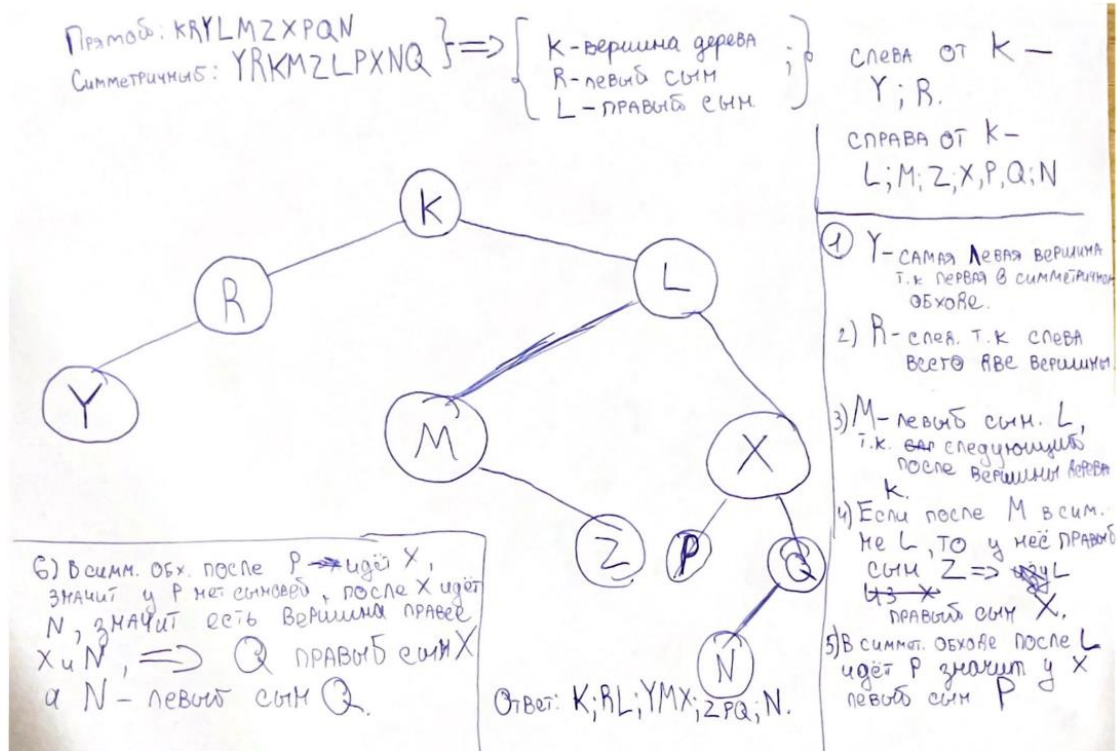 Прямой: KRYLMZXPQN
Симметричный: YRKMZLPXNQ
=>
K-вершина дерева
R-левый сын
L-правый сын
;
слева от K —
Y; R.
справа от K —
L; M; Z; X, P, Q; N
K
R
L
Y
M
X
Z
P
Q
N
1 Y- самая левая вершина
т.к первая в симметричном
обходе.
2) R- след. т.к слева
всего две вершины
3) M- левый сын. L,
т.к. следующий
после вершины дерева
K.
4) Если после M в сим.
не L, то у неё правый
сын Z => L
правый сын X.
5) В симмет. обходе после L
идёт P значит у X
левый сын P
6) В симм. обх. после P идёт X,
значит у P нет сыновей, после X идёт
N, значит есть вершина правее
X и N, => Q правый сын X
а N - левый сын Q.
Ответ: K; RL; YMX; ZPQ; N.